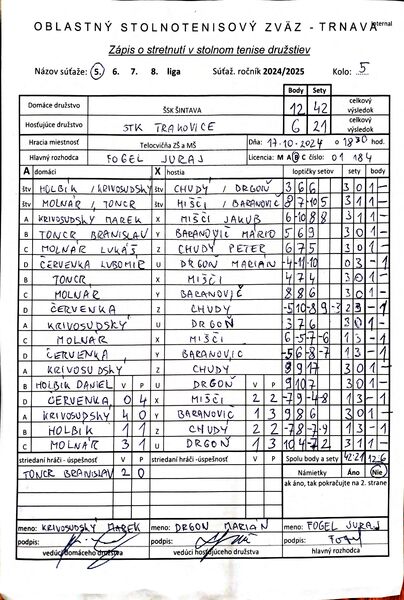 Internal
OBLASTNÝ STOLNOTENISOVÝ ZVÄZ - TRNAVA
Zápis o stretnutí v stolnom tenise družstiev
Názov súťaže: 5. 6. 7. 8. liga Súťaž. ročník 2024/2025 Kolo: 5
Body Sety
Domáce družstvo ŠSK ŠINTAVA 12 42 celkový výsledok
Hosťujúce družstvo STK TRAKOVICE 6 21 celkový výsledok
Hracia miestnosť Telocvičňa ZŠ a MŠ Dňa: 17.10.2024 o 18:30 hod.
Hlavný rozhodca FOGEL JURAJ Licencia: M A B C číslo: 01 184
A domáci X hostia loptičky setov sety body
štv HOLBÍK / KRIVOSUDSKÝ štv CHUDÝ / DRGOŇ 3 6 6 3 0 1 -
štv MOLNÁR, TONCR štv MIŠČÍ / BARANOVIČ 8 7 -10 5 3 1 1 -
A KRIVOSUDSKÝ MAREK X MIŠČÍ JAKUB 6 -10 8 8 3 1 1 -
B TONCR BRANISLAV Y BARANOVIČ MÁRIO 5 6 9 3 0 1 -
C MOLNÁR LUKÁŠ Z CHUDÝ PETER 6 7 5 3 0 1 -
D ČERVENKA ĽUBOMIR U DRGOŇ MARIÁN -4 -11 -10 0 3 - 1
B TONCR X MIŠČÍ 4 7 4 3 0 1 -
C MOLNÁR Y BARANOVIČ 8 8 6 3 0 1 -
D ČERVENKA Z CHUDÝ -5 10 -8 9 -3 2 3 - 1
A KRIVOSUDSKÝ U DRGOŇ 3 7 6 3 0 1 -
C MOLNAR X MIŠČÍ 6 -5 -7 -6 1 3 - 1
D ČERVENKA Y BARANOVIC -5 6 -8 -7 1 3 - 1
A KRIVOSUDSKÝ Z CHUDÝ 8 9 17 3 0 1 -
B HOLBÍK DANIEL V P U DRGOŇ V P 9 10 7 3 0 1 -
D ČERVENKA 0 4 X MIŠČÍ 2 2 -7 9 -4 -8 1 3 - 1
A KRIVOSUDSKÝ 4 0 Y BARANOVIC 1 3 9 8 6 3 0 1 -
B HOLBÍK 1 1 Z CHUDÝ 2 2 -7 8 -7 -9 1 3 - 1
C MOLNÁR 3 1 U DRGOŇ 1 3 10 4 -7 2 3 1 1 -
striedaní hráči - úspešnosť V P striedaní hráči - úspešnosť V P Spolu body a sety 42:21 12:6
TONCR BRANISLAV 2 0 Námietky Áno Nie
ak áno, tak pokračujte na 2. strane
meno: KRIVOSUDSKÝ MAREK meno: DRGOŇ MARIÁN meno: FOGEL JURAJ
podpis: podpis: podpis:
vedúci domáceho družstva vedúci hosťujúceho družstva hlavný rozhodca